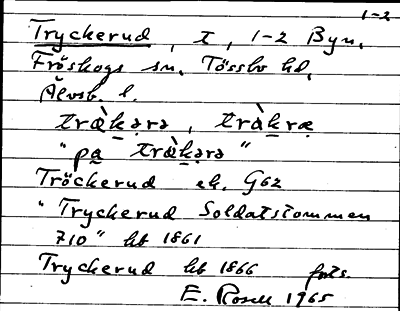 1-2
Tryckerud, t, 1-2 Byn,
Fröskogs sn. Tössbo hd,
Älvsb. l.
træ̀kərə, træ̀kræ
"på træ̀kərə"
Tröckerud ek. G62
"Tryckerud Soldatstommen
710" hb 1861
Tryckerud hb 1866 forts.
E. Rosell 1965